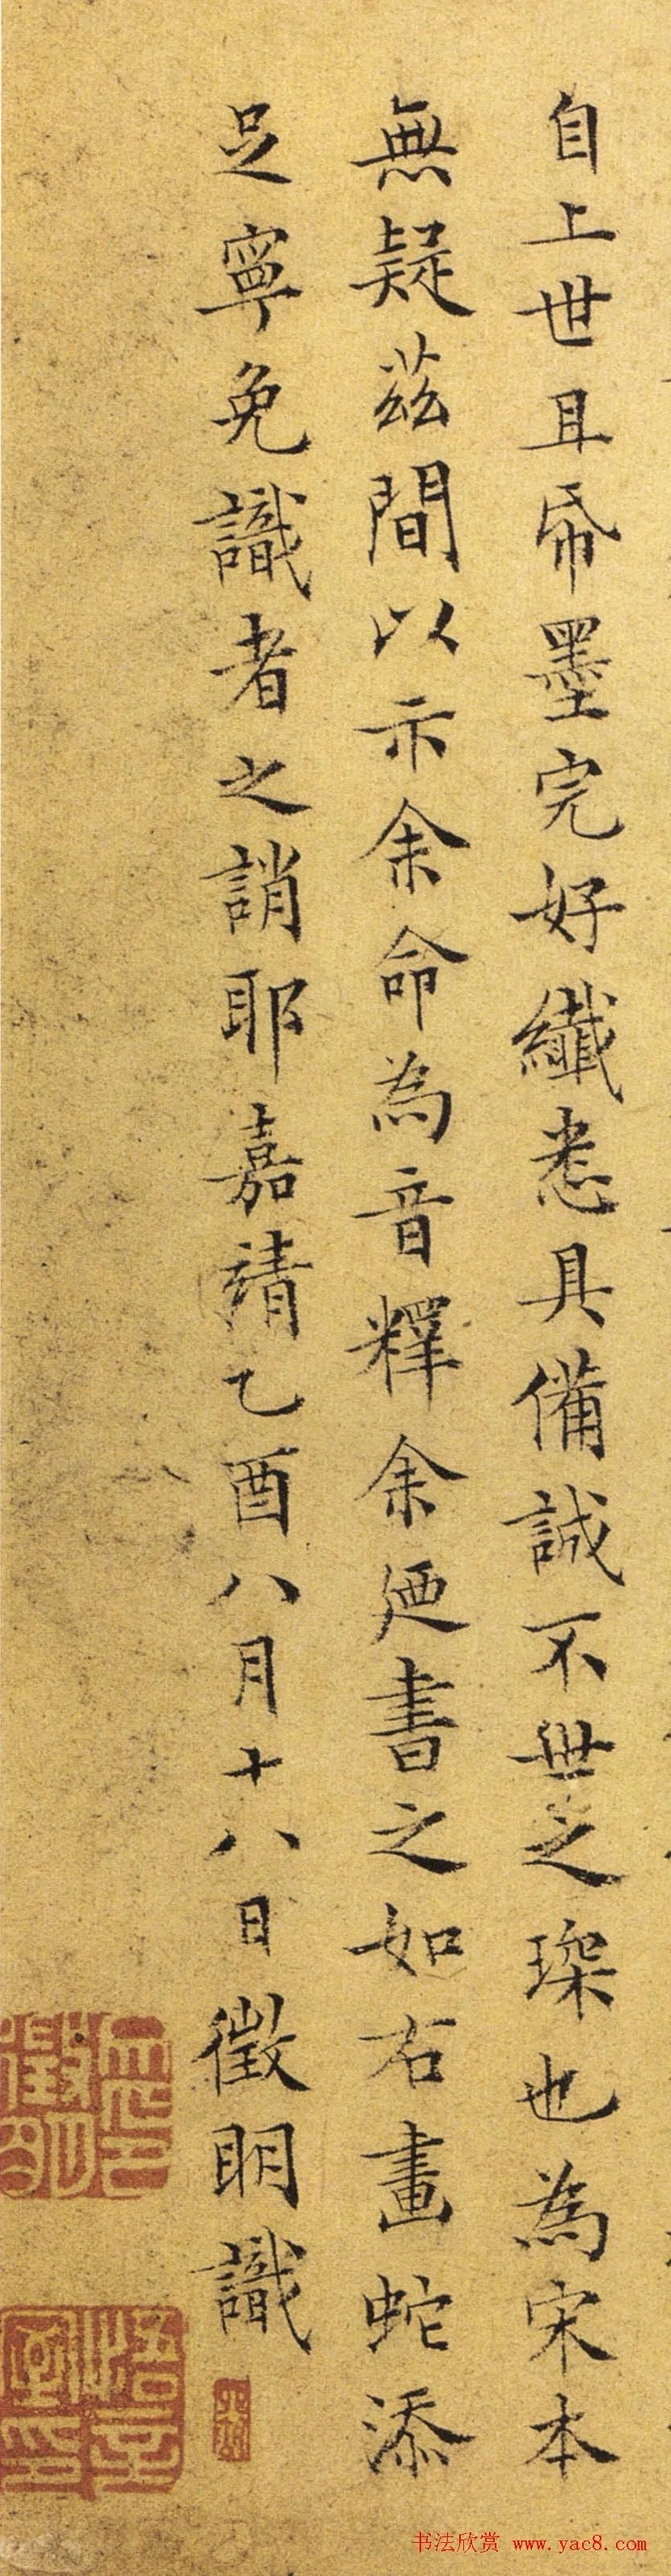 自上世且帋墨完好纖悉具備誠不世之琛也為宋本
無疑茲間以示余命為音釋余廼書之如右畫蛇添
足寧免識者之誚耶嘉靖乙酉八月十八日徵明識
书法欣赏 www.yac8.com